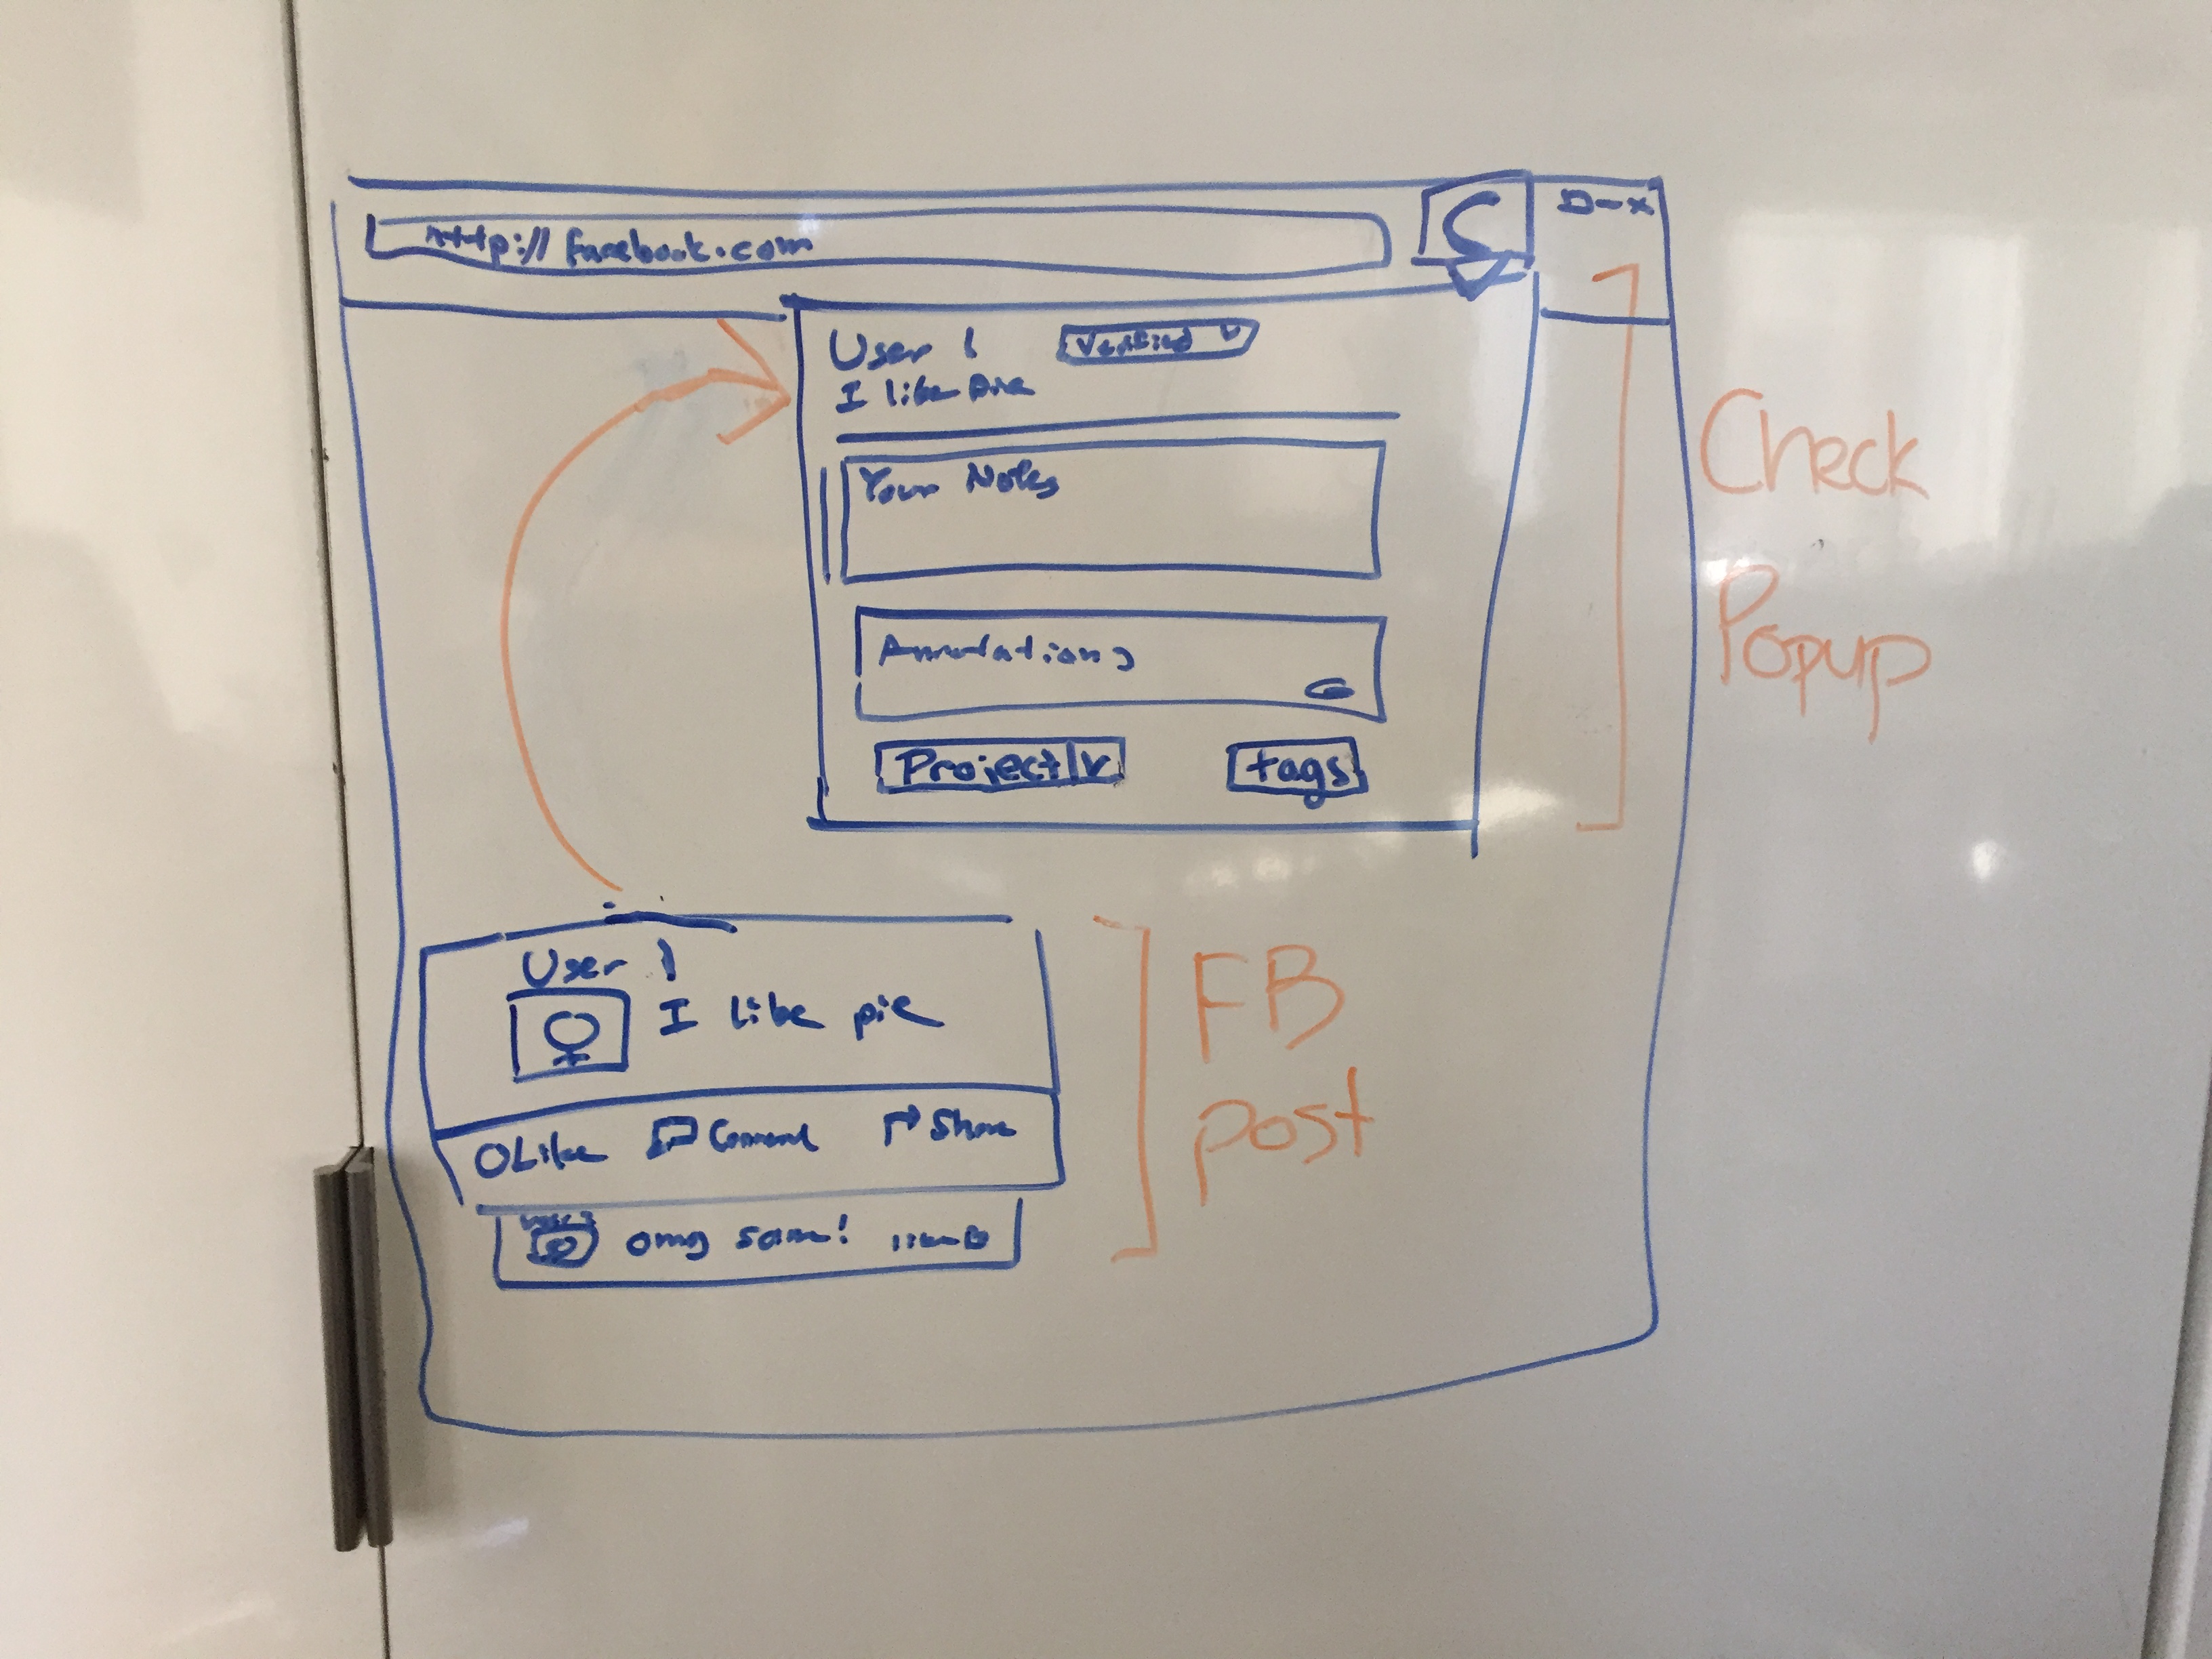 http://facebook.com
C
User 1
Verified
I like pie
Your Notes
Annotations
Project
tags
Check
Popup
User 1
I like pie
Like Comment Share
omg same!
FB
post